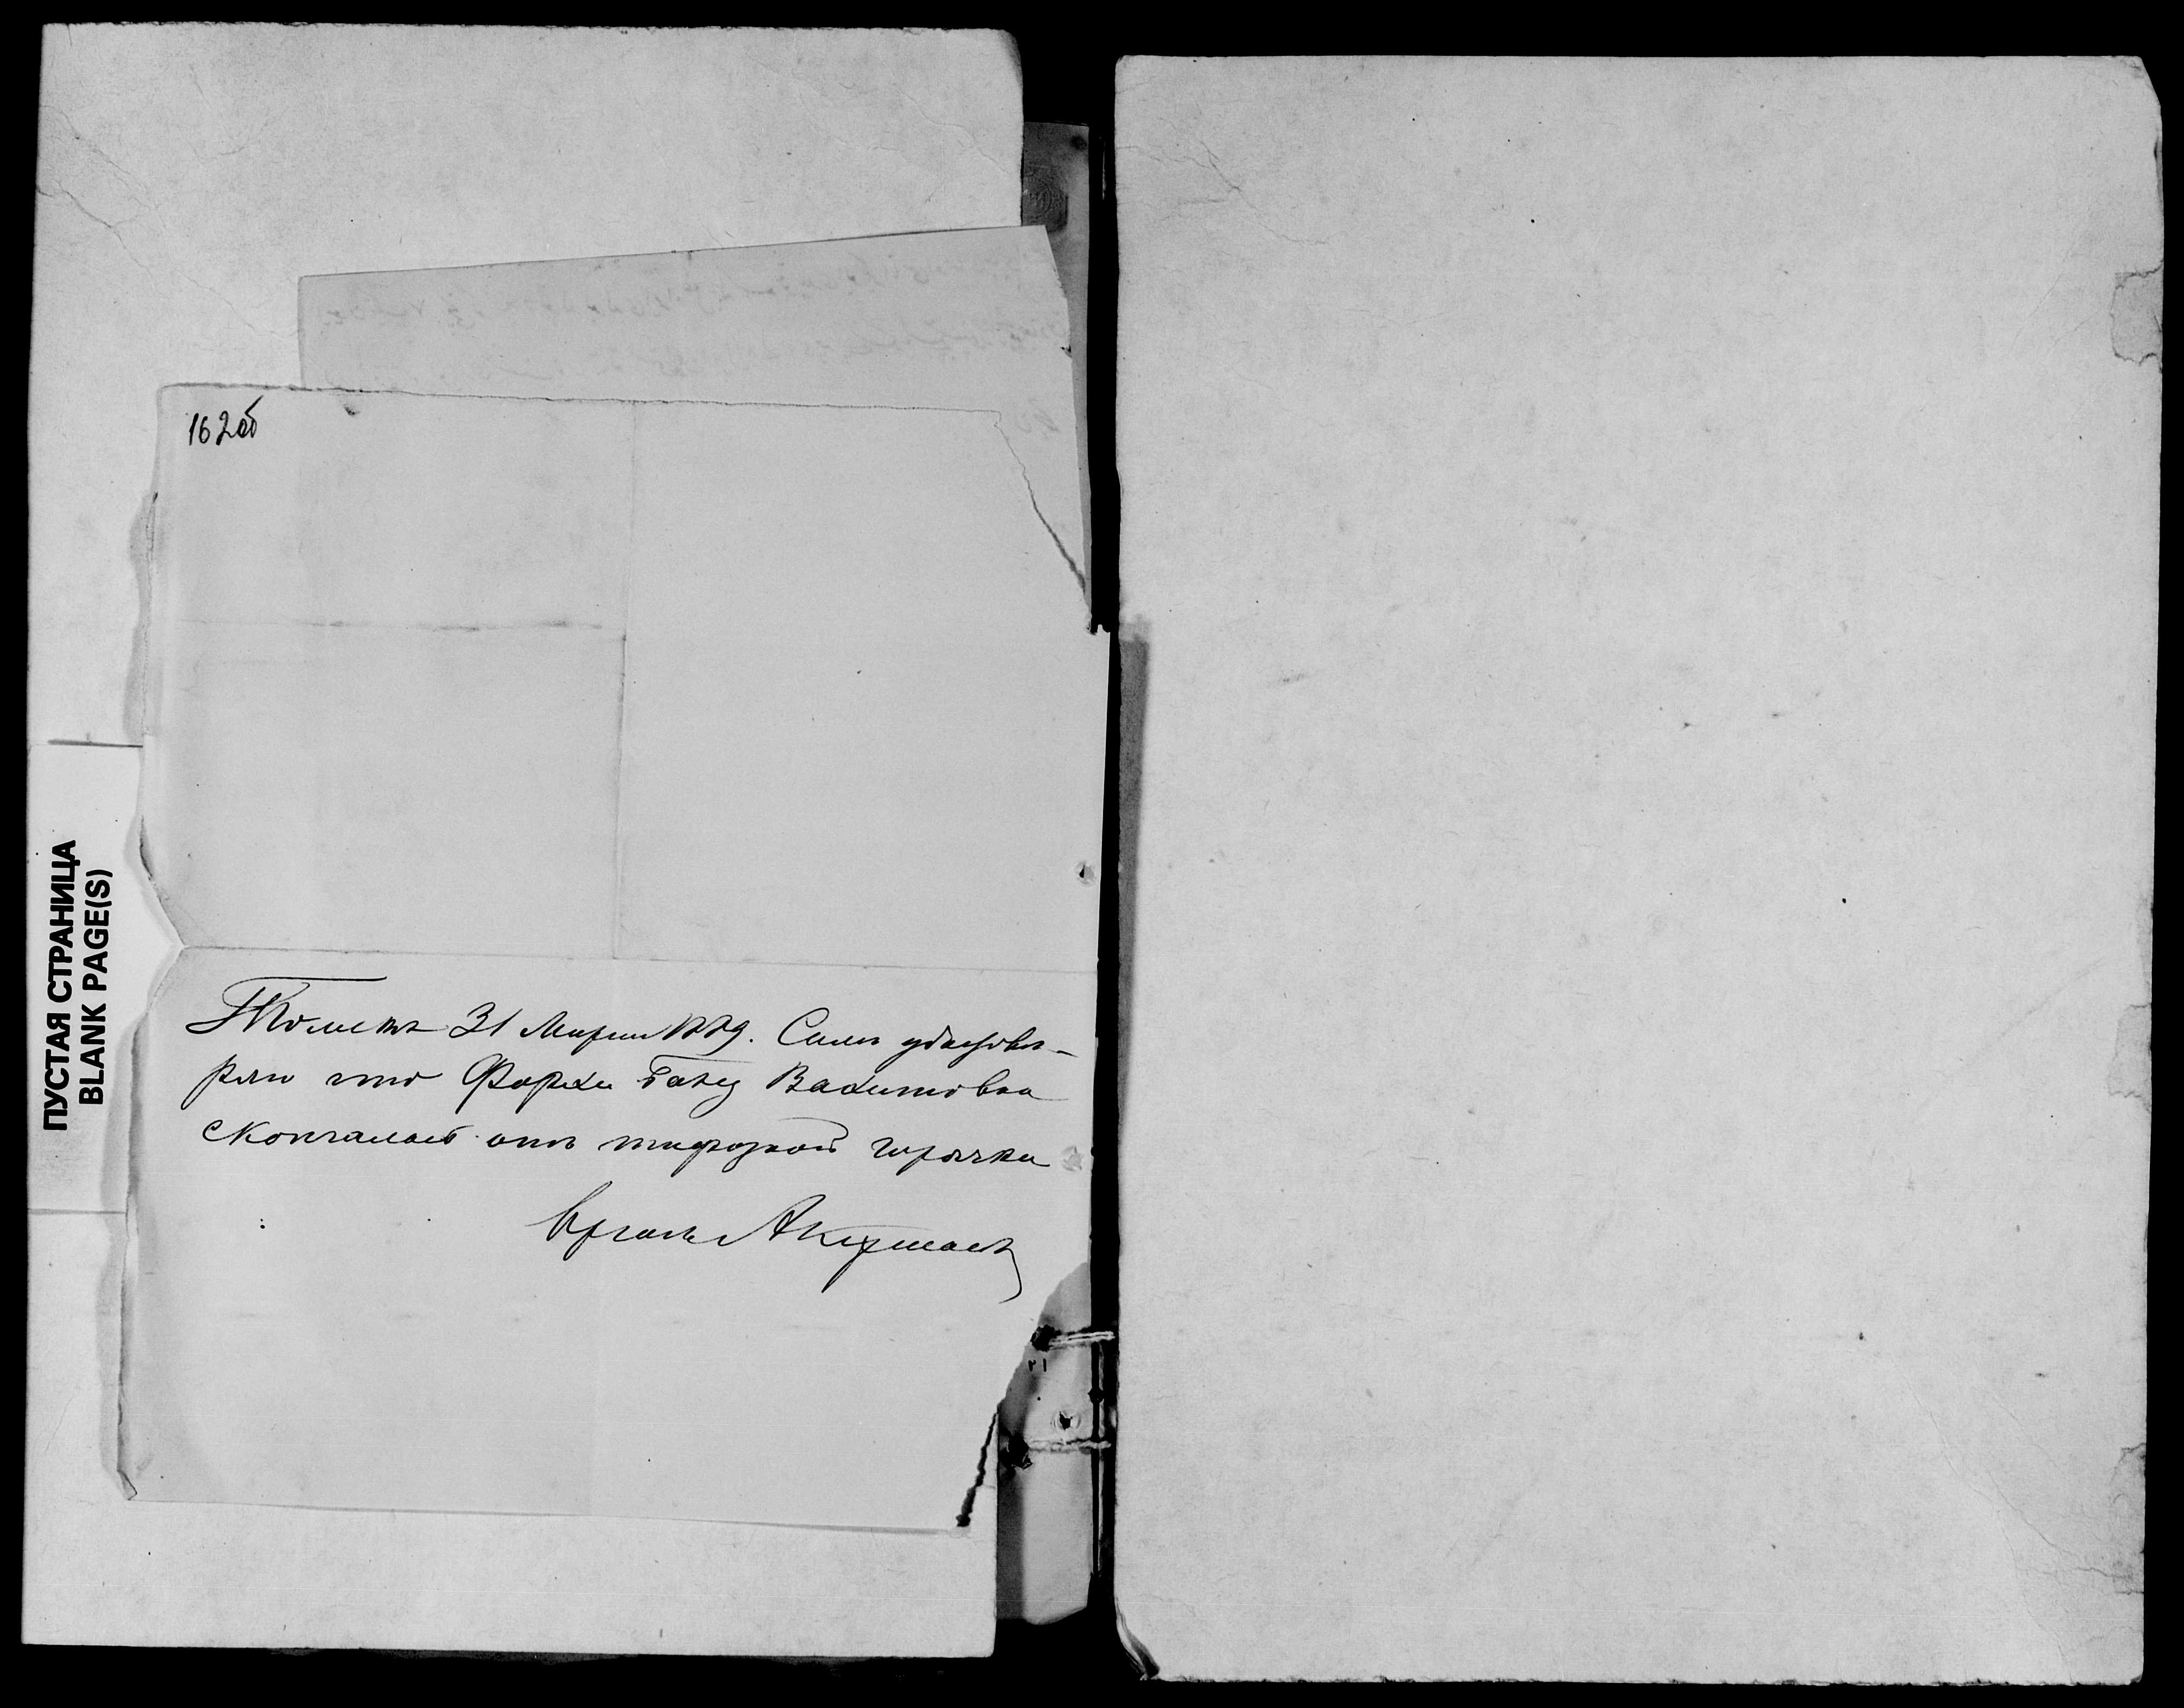 162об
ПУСТАЯ СТРАНИЦА
BLANK PAGE(S)
Томскъ 31 Марта 1879. Симъ удостове-
ряю что Фархи Бану Вахитовна
скончалась отъ тифозной горячки
Врачъ